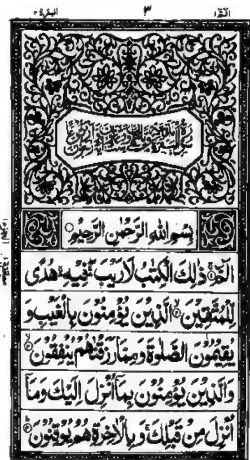 البقرة ٢
٣
الٓمّٓ ١
بِسْمِ اللهِ الرَّحْمٰنِ الرَّحِيْمِ
الٓمّٓ ۚ ذٰلِكَ الْكِتٰبُ لَا رَيْبَ ۛ فِيْهِ ۛ هُدًى
لِّلْمُتَّقِيْنَ الَّذِيْنَ يُؤْمِنُوْنَ بِالْغَيْبِ وَ
يُقِيْمُوْنَ الصَّلٰوةَ وَمِمَّا رَزَقْنٰهُمْ يُنْفِقُوْنَ
وَالَّذِيْنَ يُؤْمِنُوْنَ بِمَآ اُنْزِلَ اِلَيْكَ وَمَآ
اُنْزِلَ مِنْ قَبْلِكَ ۚ وَبِالْاٰخِرَةِ هُمْ يُوْقِنُوْنَ